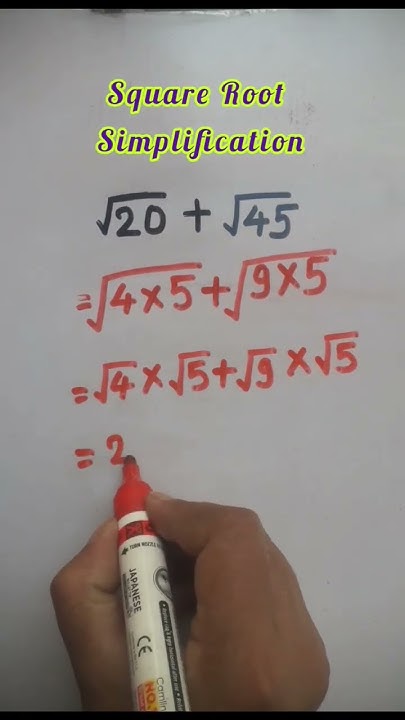 Square Root
Simplification
√20 + √45
=√4×5+√9×5
=√4×√5+√9×√5
= 2
JAPANESE
CE
Camlin